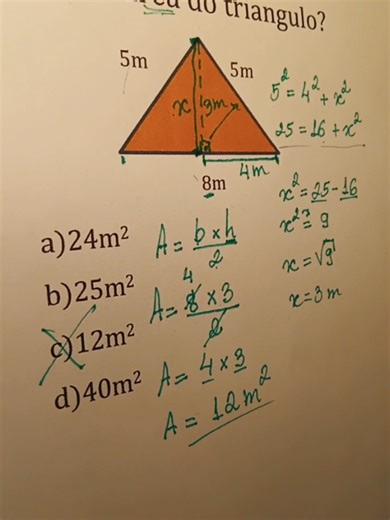 do triangulo?
5m
5m
x
3m
4m
8m
5² = 4² + x²
25 = 16 + x²
x² = 25 - 16
x² = 9
x = √9
x = 3 m
a) 24m²
b) 25m²
c) 12m²
d) 40m²
A = b x h / 2
4
A = 8 x 3 / 2
A = 4 x 3
A = 12 m²